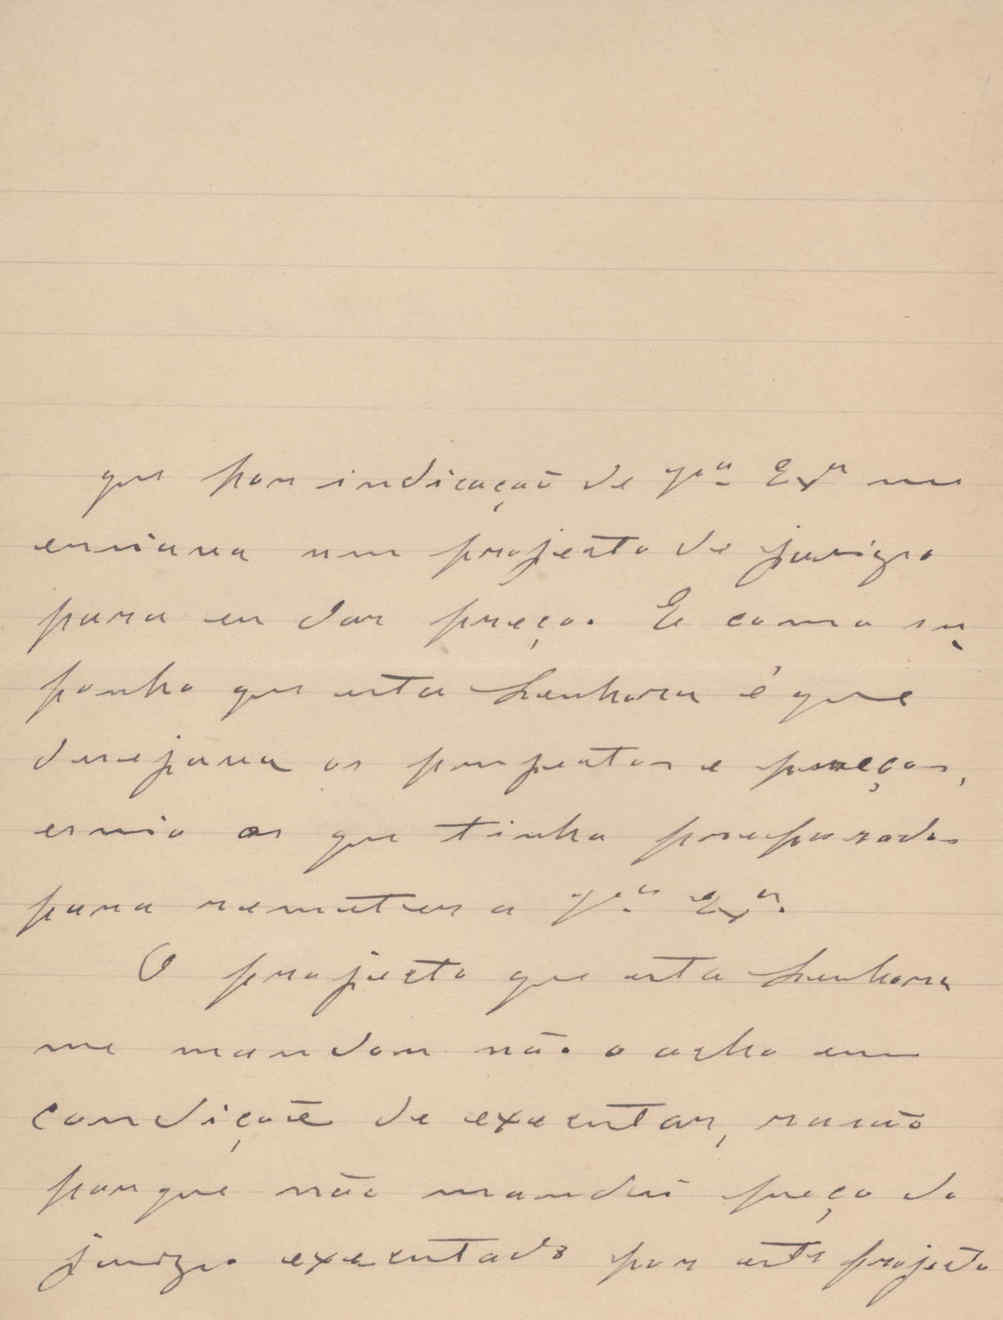 que por indicação de V.ª Ex.ª me
enviava um projecto de jazigo
para eu dar preço. E como su
ponho que esta senhora é que
desejava os projectos e preços,
envio os que tinha preparados
para remeter a V.ª Ex.ª.
O projecto que esta senhora
me mandou não o acho em
condiçõe de executar, rasão
porque não mandei preço do
jazigo executado por este projecto